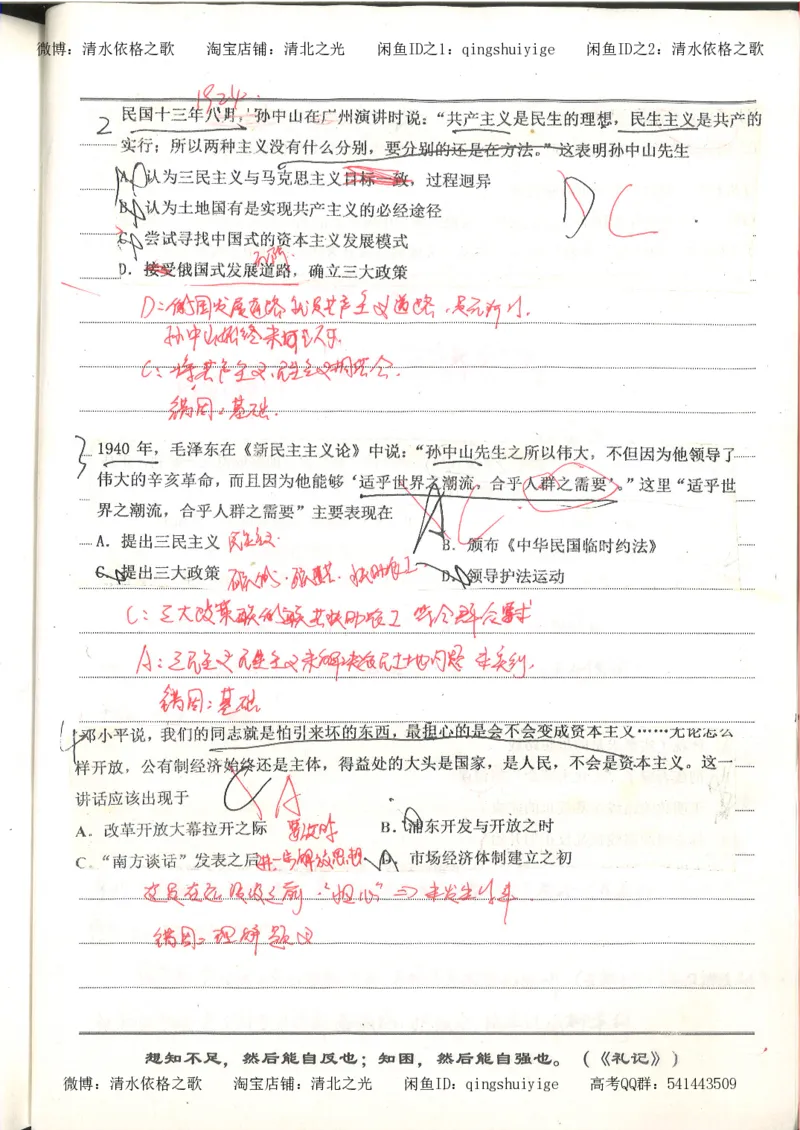 微博：清水依格之歌 淘宝店铺：清北之光 闲鱼ID之1：qingshuiyige 闲鱼ID之2：清水依格之歌
1924.
2 民国十三年八月，孙中山在广州演讲时说：“共产主义是民生的理想，民生主义是共产的
实行；所以两种主义没有什么分别，要分别的还是在方法。”这表明孙中山先生
A. 认为三民主义与马克思主义目标一致，过程迥异
B. 认为土地国有是实现共产主义的必经途径
D C
C. 尝试寻找中国式的资本主义发展模式
D. 接受俄国式发展道路，确立三大政策
D：俄国发展道路就是共产主义道路
孙中山始终未
C：将共产主义、民生主义相结合.
错因：基础.
3 1940 年，毛泽东在《新民主主义论》中说：“孙中山先生之所以伟大，不但因为他领导了
伟大的辛亥革命，而且因为他能够‘适乎世界之潮流，合乎人群之需要’。”这里“适乎世
界之潮流，合乎人群之需要”主要表现在
A C
A. 提出三民主义 民生主义 B. 颁布《中华民国临时约法》
C. 提出三大政策 联俄、联共、扶助农工 D. 领导护法运动
C：三大政策联俄联共扶助农工 符合群众需求
A：三民主义民生主义未解决农民土地问题
错因：基础
4 邓小平说，我们的同志就是怕引来坏的东西，最担心的是会不会变成资本主义……无论怎么
样开放，公有制经济始终还是主体，得益处的大头是国家，是人民，不会是资本主义。这一
讲话应该出现于
C A
A. 改革开放大幕拉开之际 B. 浦东开发与开放之时
C. “南方谈话”发表之后 进一步解放思想 D. 市场经济体制建立之初
之前 “担心”⇒未发生
错因：理解题目
想知不足，然后能自反也；知困，然后能自强也。（《礼记》）
微博：清水依格之歌 淘宝店铺：清北之光 闲鱼ID：qingshuiyige 高考QQ群：541443509